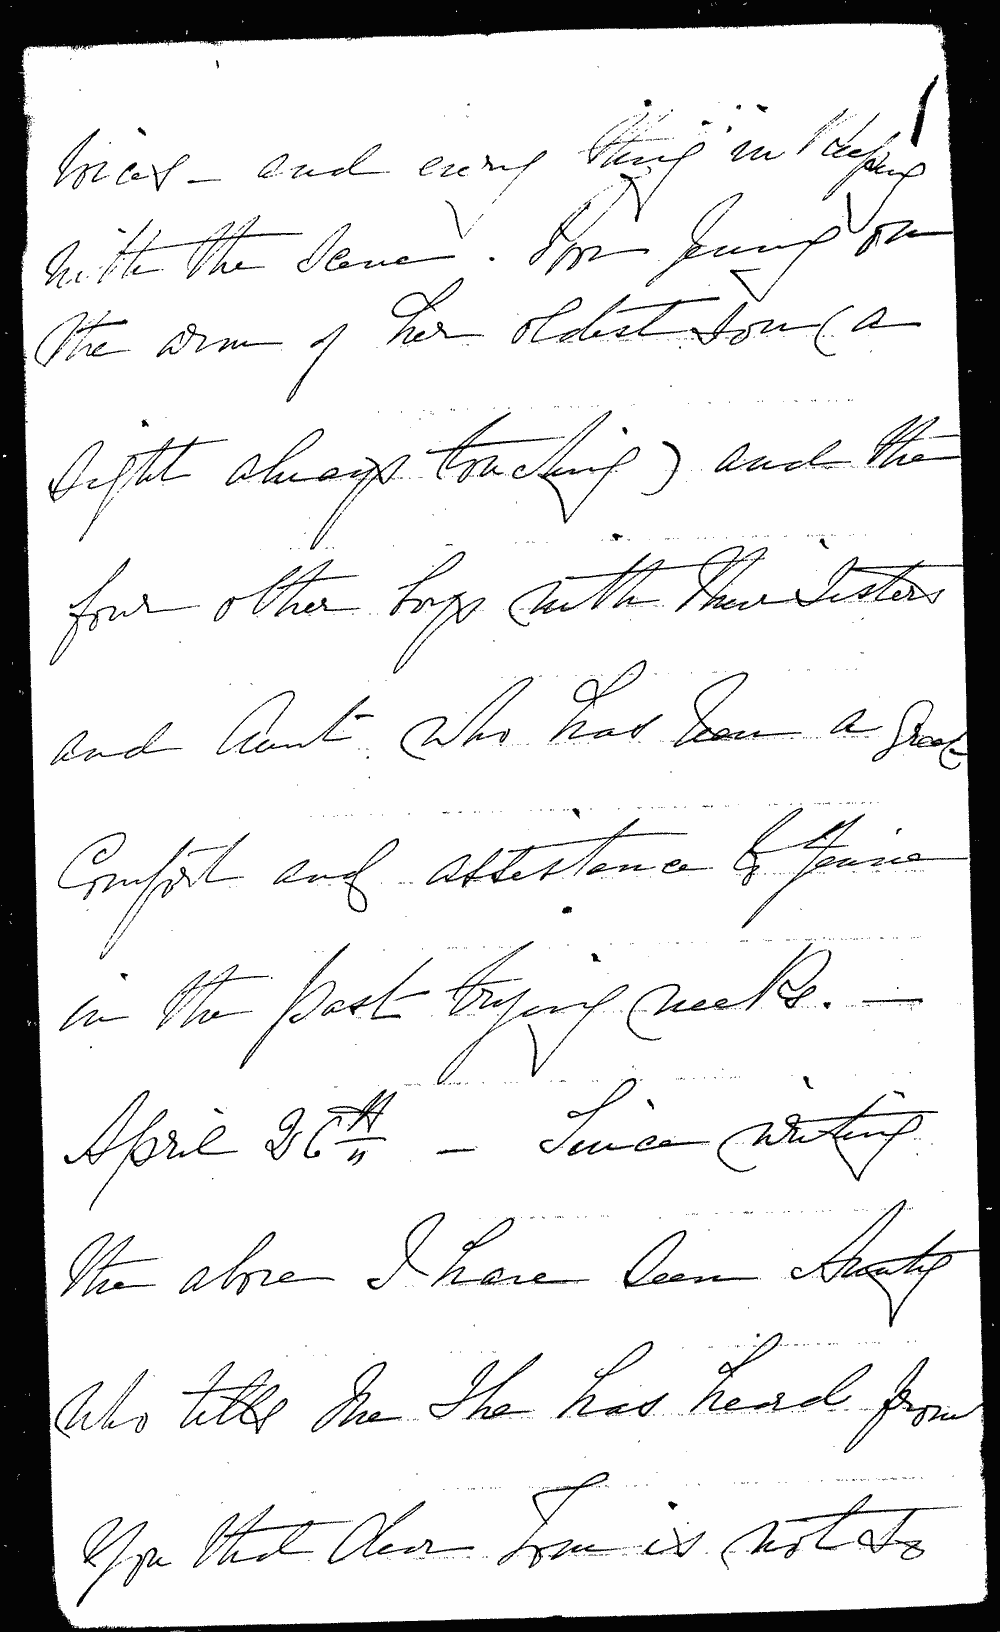 voices – and every thing in Keeping
with the scene. Poor Jenny on
the arm of her oldest son (a
sight always touching) and the
four other boys with their sisters
and Aunt who has been a great
Comfort and assistance to Jennie
in the past trying weeks. —
April 26th – Since writing
the above I have seen Aunty
who tells me she has heard from
you that dear Tom is not so